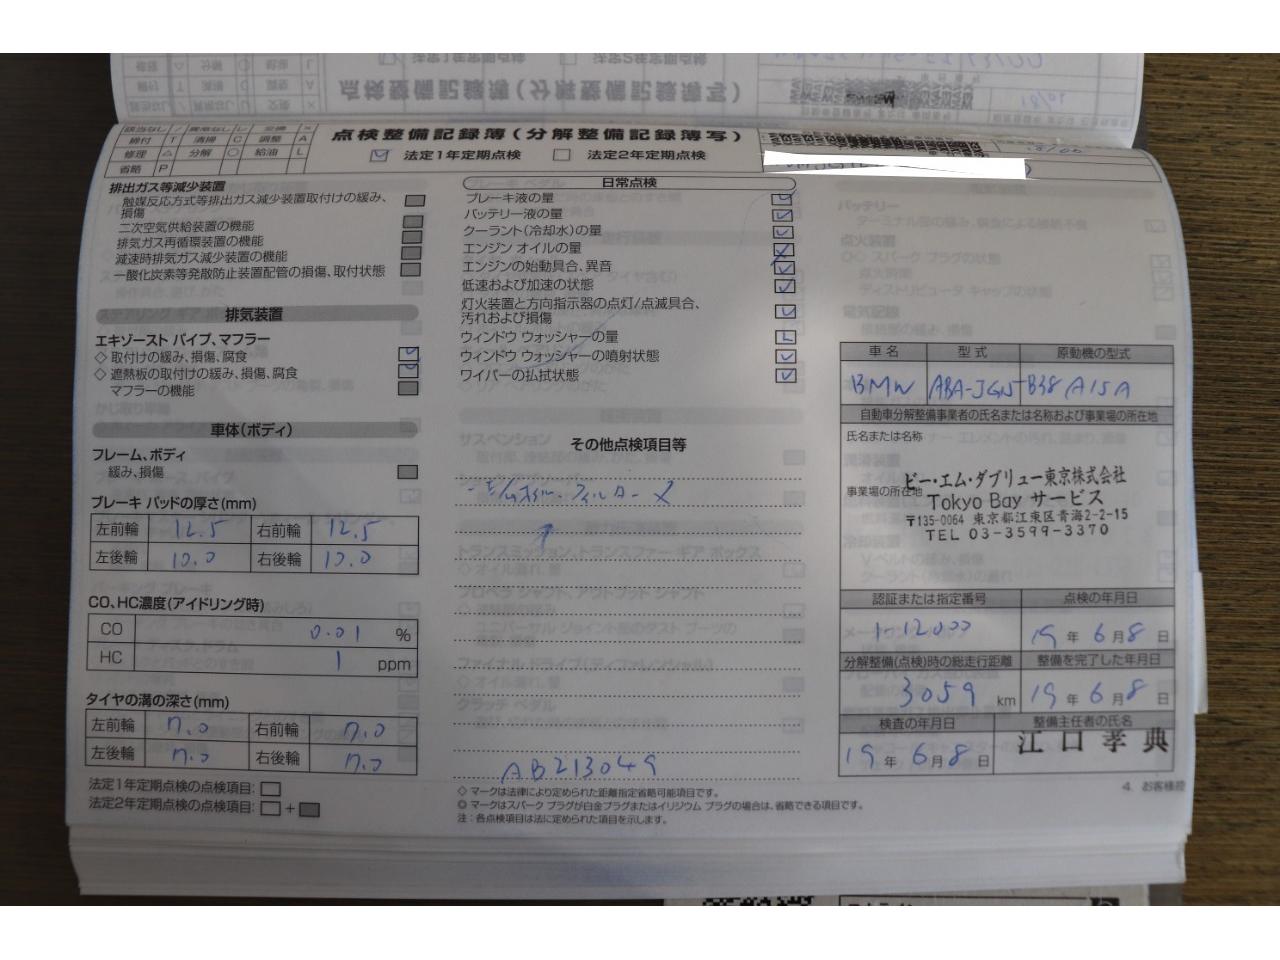 点検整備記録簿(分解整備記録簿写)
法定1年定期点検 法定2年定期点検
締付 T 清掃 C 調整 A
修理 △ 分解 ○ 給油 L
省略 P
排出ガス等減少装置
触媒反応方式等排出ガス減少装置取付けの緩み、
損傷
二次空気供給装置の機能
排気ガス再循環装置の機能
減速時排気ガス減少装置の機能
一酸化炭素等発散防止装置配管の損傷、取付状態
排気装置
エキゾースト パイプ、マフラー
◇ 取付けの緩み、損傷、腐食
◇ 遮熱板の取付けの緩み、損傷、腐食
マフラーの機能
車体(ボディ)
フレーム、ボディ
緩み、損傷
ブレーキ パッドの厚さ(mm)
左前輪 12.5 右前輪 12.5
左後輪 10.0 右後輪 10.0
CO、HC濃度(アイドリング時)
CO 0.01 %
HC 1 ppm
タイヤの溝の深さ(mm)
左前輪 7.0 右前輪 7.0
左後輪 7.0 右後輪 7.0
法定1年定期点検の点検項目:
法定2年定期点検の点検項目: +
日常点検
ブレーキ液の量
バッテリー液の量
クーラント(冷却水)の量
エンジン オイルの量
エンジンの始動具合、異音
低速および加速の状態
灯火装置と方向指示器の点灯/点滅具合、
汚れおよび損傷
ウィンドウ ウォッシャーの量 L
ウィンドウ ウォッシャーの噴射状態
ワイパーの払拭状態
その他点検項目等
AB213049
◇ マークは法律により定められた距離指定省略可能項目です。
◎ マークはスパーク プラグが白金プラグまたはイリジウム プラグの場合は、省略できる項目です。
注：各点検項目は法に定められた項目を示します。
車名 型式 原動機の型式
BMW ABA-JG15 B38A15A
自動車分解整備事業者の氏名または名称および事業場の所在地
氏名または名称
ビー・エム・ダブリュー東京株式会社
事業場の所在地
Tokyo Bay サービス
〒135-0064 東京都江東区青海2-2-15
TEL 03-3599-3370
認証または指定番号 点検の年月日
1-12000 19 年 6 月 8 日
分解整備(点検)時の総走行距離 整備を完了した年月日
3059 km 19 年 6 月 8 日
検査の年月日 整備主任者の氏名
19 年 6 月 8 日 江口孝典
4. お客様控